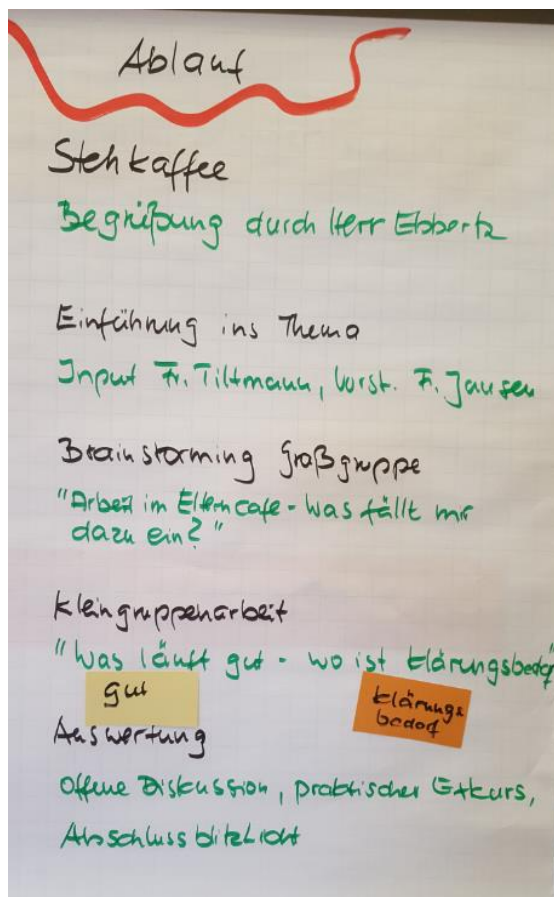 Ablauf
Stehkaffee
Begrüßung durch Herr Ebbertz
Einführung ins Thema
Input Fr. Tiltmann, Vorst. Fr. Jansen
Brainstorming Großgruppe
"Arbeit im Elterncafe - was fällt mir
dazu ein?"
Kleingruppenarbeit
"Was läuft gut - wo ist Klärungsbedarf"
gut
Klärungs
bedarf
Auswertung
Offene Diskussion, praktischer Exkurs,
Abschlussblitzlicht